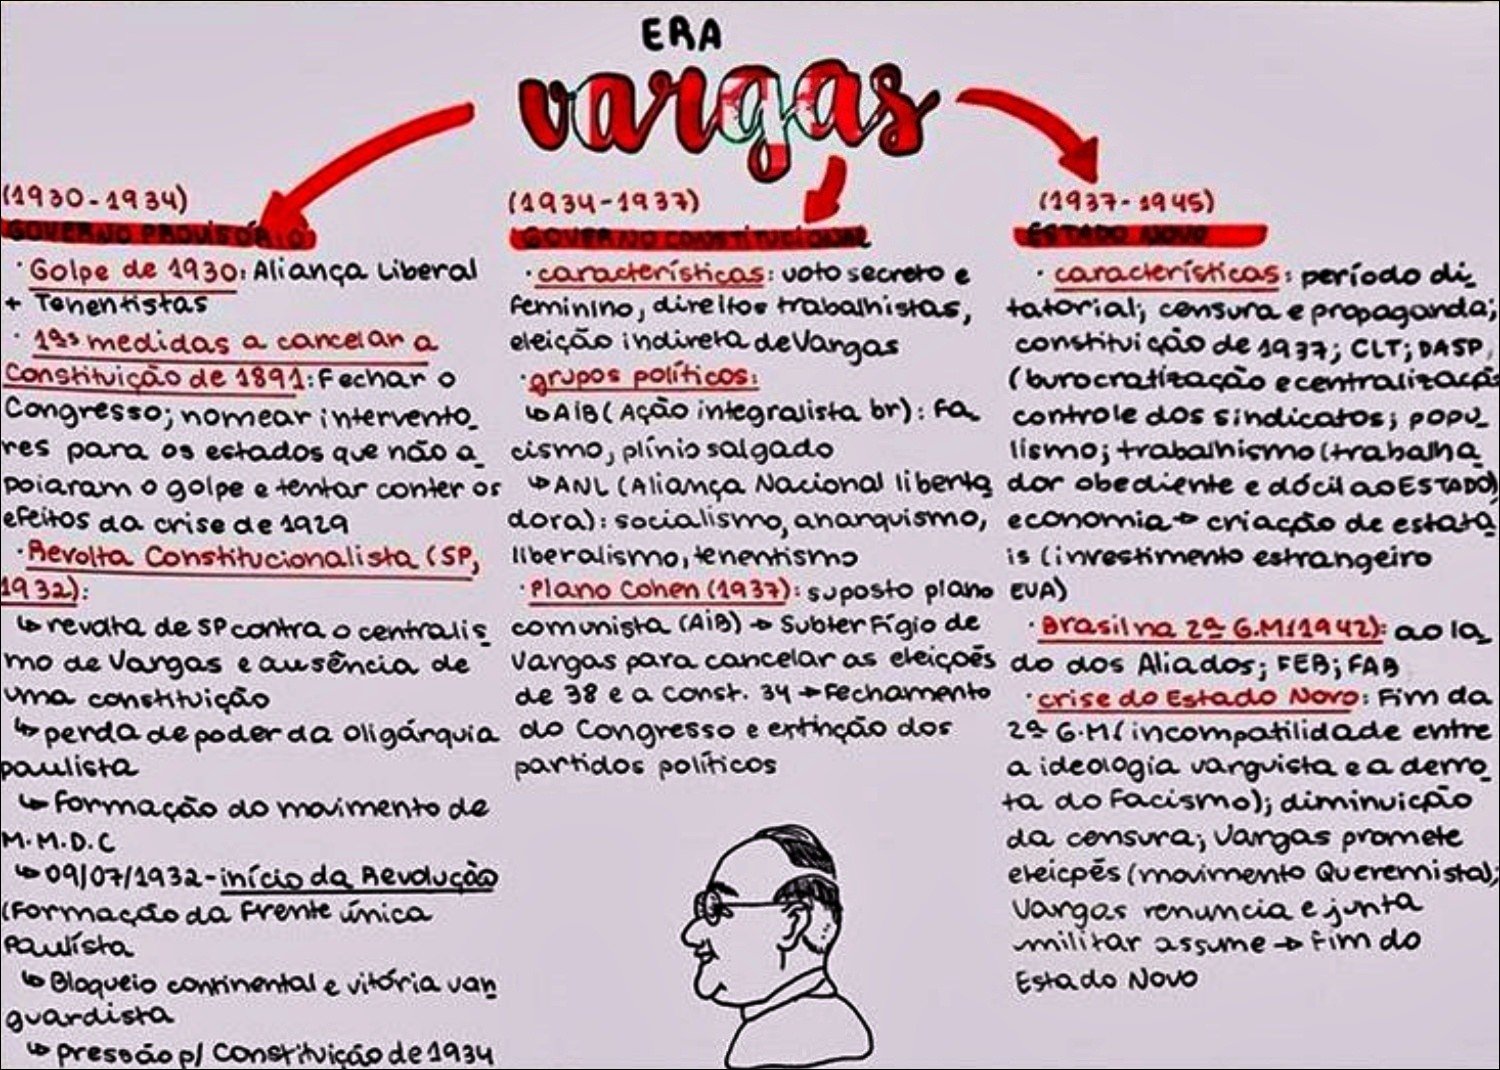 ERA
vargas
(1930-1934)
GOVERNO PROVISÓRIO
· Golpe de 1930: Aliança Liberal
+ Tenentistas
· 1ªs medidas a cancelar a
Constituição de 1891: Fechar o
Congresso; nomear intervento_
res para os estados que não a_
poiaram o golpe e tentar conter os
efeitos da crise de 1929
· Revolta Constitucionalista (SP,
1932):
↳ revolta de SP contra o centralis_
mo de Vargas e ausência de
uma constituição
↳ perda de poder da oligárquia
paulista
↳ formação do movimento de
M.M.D.C
↳ 09/07/1932 - início da Revolução
(Formação da Frente única
Paulista
↳ Bloqueio continental e vitória van
guardista
↳ pressão p/ Constituição de 1934
(1934-1937)
GOVERNO CONSTITUCIONAL
· características: voto secreto e
feminino, direitos trabalhistas,
eleição indireta de Vargas
· grupos políticos:
↳ AIB (Ação integralista br): Fa_
cismo, plínio salgado
↳ ANL (Aliança Nacional liberta
dora): socialismo, anarquismo,
liberalismo, tenentismo
· Plano Cohen (1937): suposto plano
comunista (AIB) → Subterfígio de
Vargas para cancelar as eleições
de 38 e a const. 34 → Fechamento
do Congresso e extinção dos
partidos políticos
(1937-1945)
ESTADO NOVO
· características: período di_
tatorial; censura e propaganda;
constituição de 1937; CLT; DASP,
(burocratização e centralizaçã
controle dos sindicatos; popu_
lismo; trabalhismo (trabalha_
dor obediente e dócil ao ESTADO)
economia → criação de estata
is (investimento estrangeiro
EUA)
· Brasil na 2ª G.M (1942): ao la_
do dos Aliados; FEB; FAB
· crise do Estado Novo: Fim da
2ª G.M (incompatilidade entre
a ideologia varguista e a derro_
ta do Facismo); diminuição
da censura; Vargas promete
eleições (movimento Queremista);
Vargas renuncia e junta
militar assume → Fim do
Estado Novo